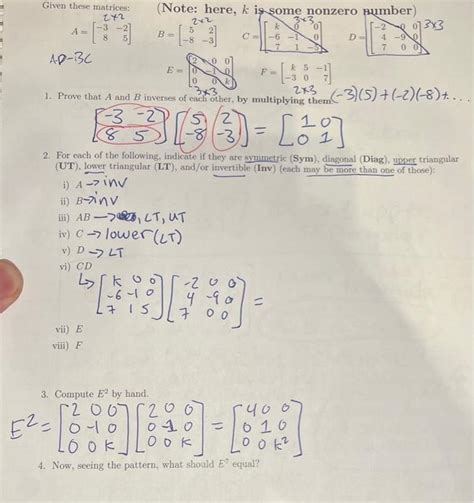 Given these matrices: (Note: here, k is some nonzero number)
2x2 2x2 3x3 3x3
A = [-3 -2; 8 5] B = [5 2; -8 -3] C = [k 0 0; -6 -1 0; 7 1 -5] D = [-2 0 0; 4 -9 0; 7 0 0]
AD-BC
E = [2 0 0; 0 -1 0; 0 0 k] F = [k 5 -1; -3 0 7]
3x3 2x3
1. Prove that A and B inverses of each other, by multiplying them. (-3)(5)+(-2)(-8)+...
[-3 -2; 8 5] [5 2; -8 -3] = [1 0; 0 1]
2. For each of the following, indicate if they are symmetric (Sym), diagonal (Diag), upper triangular
(UT), lower triangular (LT), and/or invertible (Inv) (each may be more than one of those):
i) A → inv
ii) B → inv
iii) AB → , LT, UT
iv) C → lower (LT)
v) D → LT
vi) CD
↳ [k 0 0; -6 -1 0; 7 1 5] [-2 0 0; 4 -9 0; 7 0 0] =
vii) E
viii) F
3. Compute E² by hand.
E² = [2 0 0; 0 -1 0; 0 0 k] [2 0 0; 0 -1 0; 0 0 k] = [4 0 0; 0 1 0; 0 0 k²]
4. Now, seeing the pattern, what should E⁷ equal?